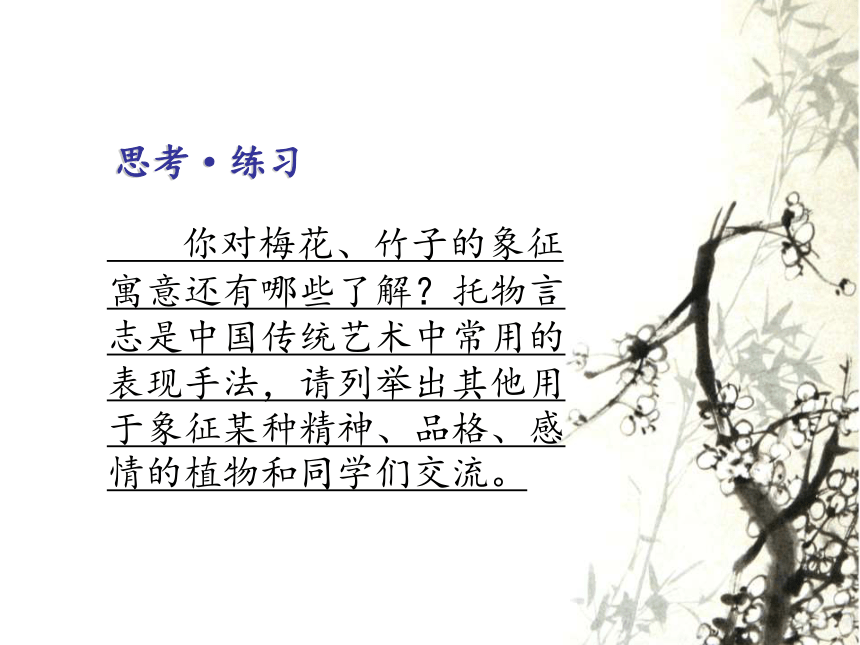 思考·练习
你对梅花、竹子的象征
寓意还有哪些了解？托物言
志是中国传统艺术中常用的
表现手法，请列举出其他用
于象征某种精神、品格、感
情的植物和同学们交流。